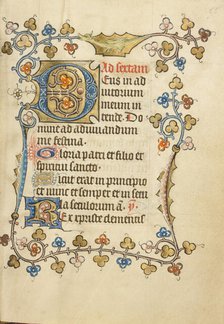 Ad sextam
Deus in ad
iutorium
meum in
tende. Do
mine ad adiuuandum
me festina.
Gloria patri et filio et
spiritui sancto.
Sicut erat in principio
et nunc et semper et in
seculorum a